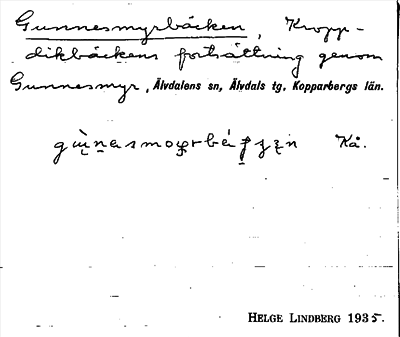 Gunnesmyrbäcken, Kropp-
dikbäckens fortsättning genom
Gunnesmyr, Älvdalens sn, Älvdals tg. Kopparbergs län.
Kå.
HELGE LINDBERG 1935.